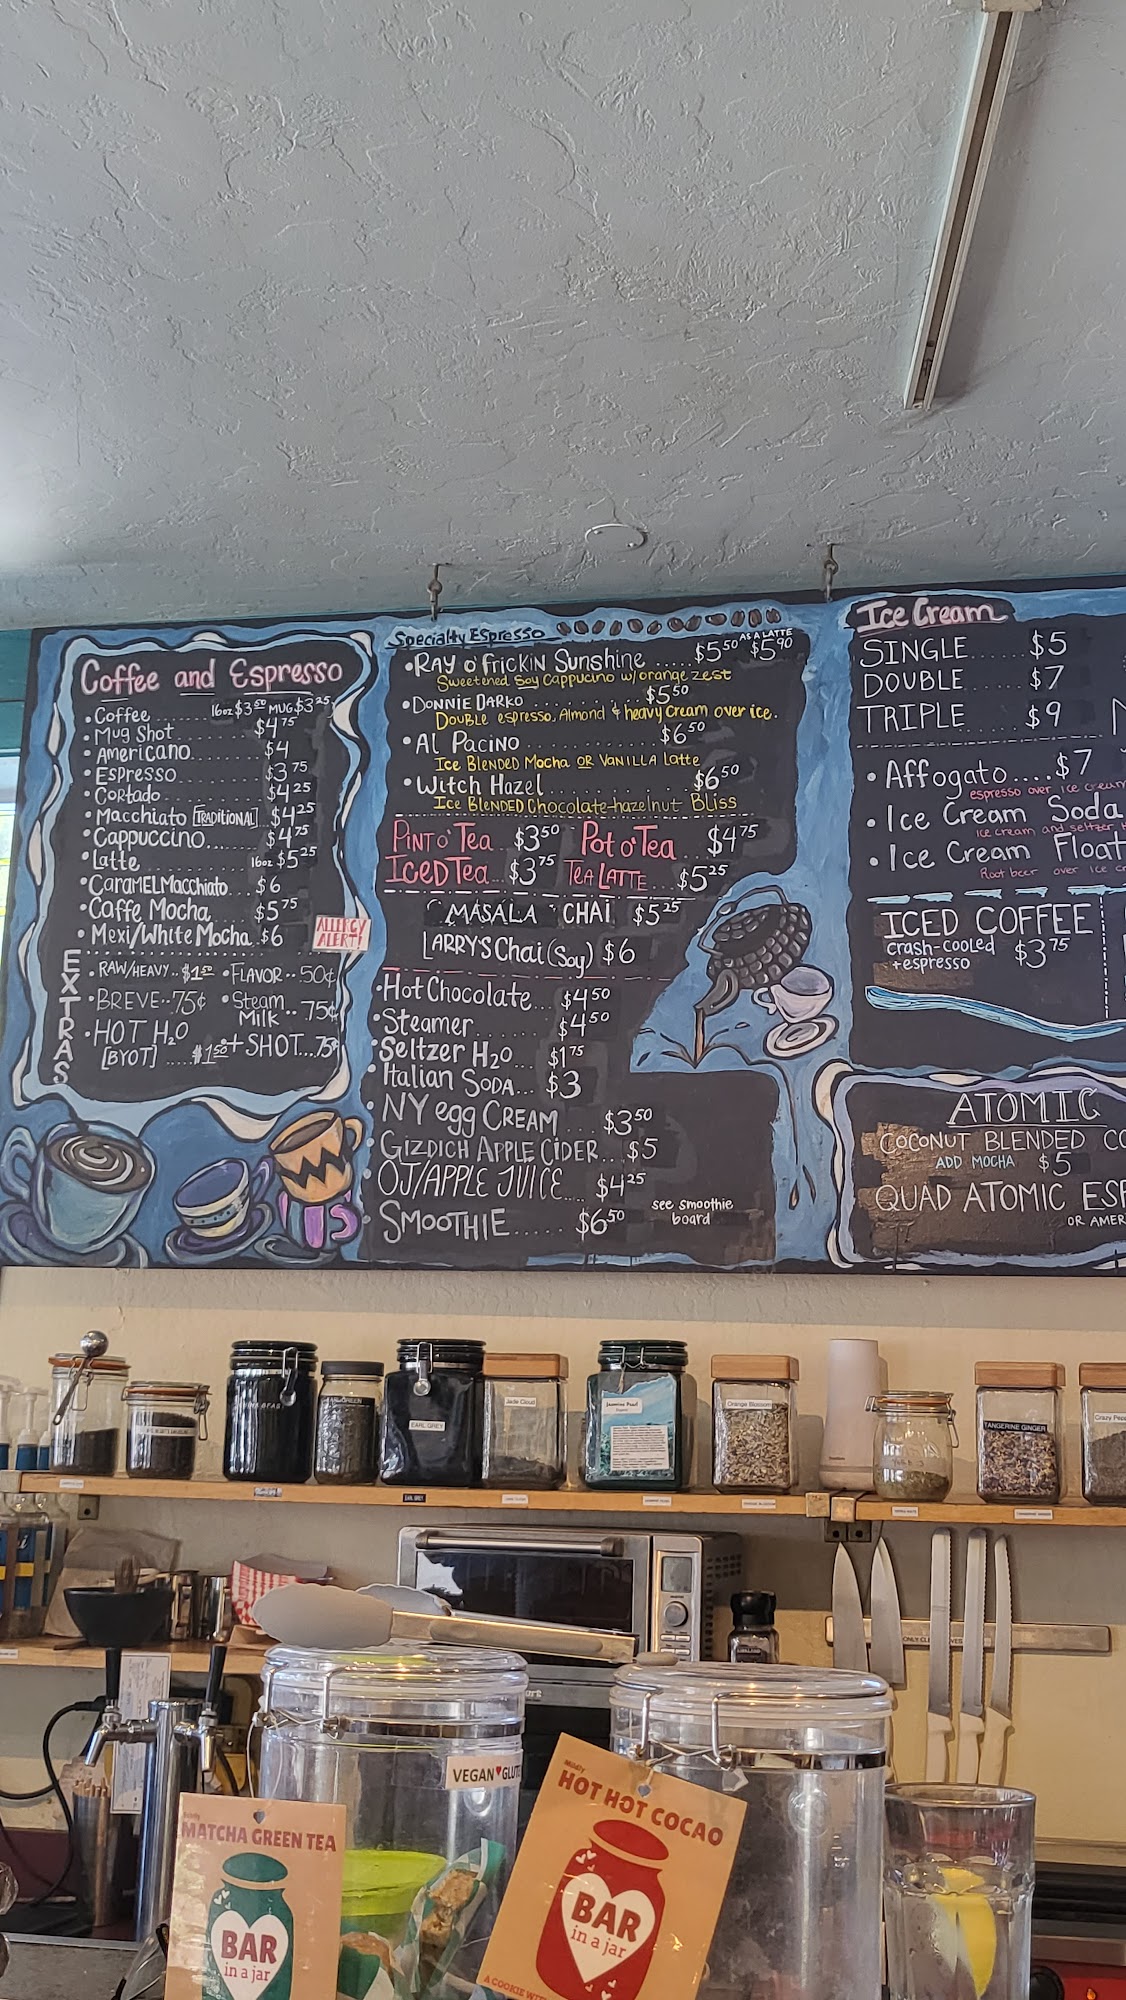 Coffee and Espresso
• Coffee ........ 16oz $3.50 MUG $3.25
• Mug Shot ...... $4.75
• Americano ...... $4
• Espresso ...... $3.75
• Cortado ...... $4.25
• Macchiato [TRADITIONAL] $4.25
• Cappuccino .... $4.75
• Latte ...... 16oz $5.25
• CaraMEL Macchiato... $6
• Caffe Mocha .... $5.75
• Mexi/White Mocha. $6
ALLERGY
ALERT!
EXTRAS
• RAW/HEAVY.. $1.50 • FLAVOR.. 50¢
• BREVE.. 75¢ • Steam Milk.. 75¢
• HOT H2O
[BYOT] ..... $1.50 + SHOT... 75¢
Specialty Espresso
AS A LATTE
• RAY o' frickin Sunshine ..... $5.50 $5.90
Sweetened Soy Cappucino w/orange zest
• DONNIE DARKO ............ $5.50
Double espresso, Almond & heavy cream over ice.
• Al Pacino ............ $6.50
Ice Blended Mocha OR VANILLA latte
• Witch Hazel .............. $6.50
Ice BLENDED Chocolate-hazelnut Bliss
PINT o' Tea $3.50 Pot o' Tea $4.75
ICED Tea... $3.75 TEA LATTE... $5.25
MASALA CHAI $5.25
LARRY'S Chai (Soy) $6
• Hot Chocolate... $4.50
• Steamer ...... $4.50
• Seltzer H2O ... $1.75
• Italian SODA... $3
• NY egg CREAM ... $3.50
• GIZDICH APPLE CIDER... $5
• OJ/APPLE JUICE.... $4.25
• SMOOTHIE ..... $6.50 see smoothie
board
Ice Cream
SINGLE ..... $5
DOUBLE ..... $7
TRIPLE ..... $9
• Affogato .... $7
espresso over ice cream
• Ice Cream Soda
ice cream and seltzer
• Ice Cream Float
Root beer over ice
ICED COFFEE
crash-cooled
+espresso $3.75
ATOMIC
COCONUT BLENDED
ADD MOCHA $5
QUAD ATOMIC
OR
EARL GREY
Jade Cloud
Jasmine Pearl
Orange Blossom
TANGERINE GINGER
Crazy
EARL GREY
VEGAN
MATCHA GREEN TEA
BAR
in a jar
HOT HOT COCAO
BAR
in a jar
A COOKIE